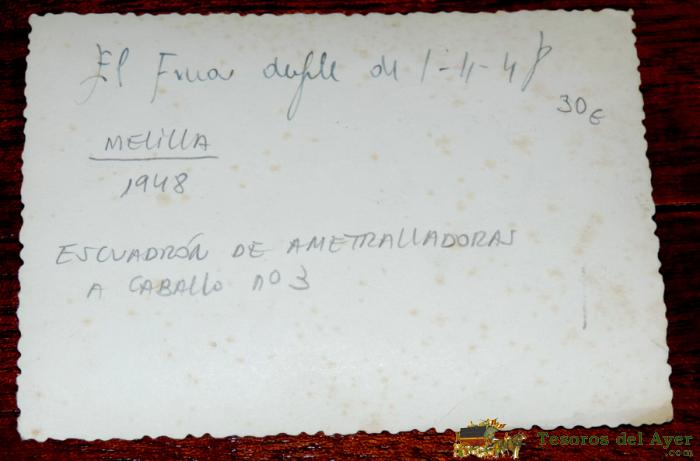 El
de 1-4-48
30€
MELILLA
1948
ESCUADRÓN DE AMETRALLADORAS
A CABALLO nº 3
Tesoros del Ayer
.com